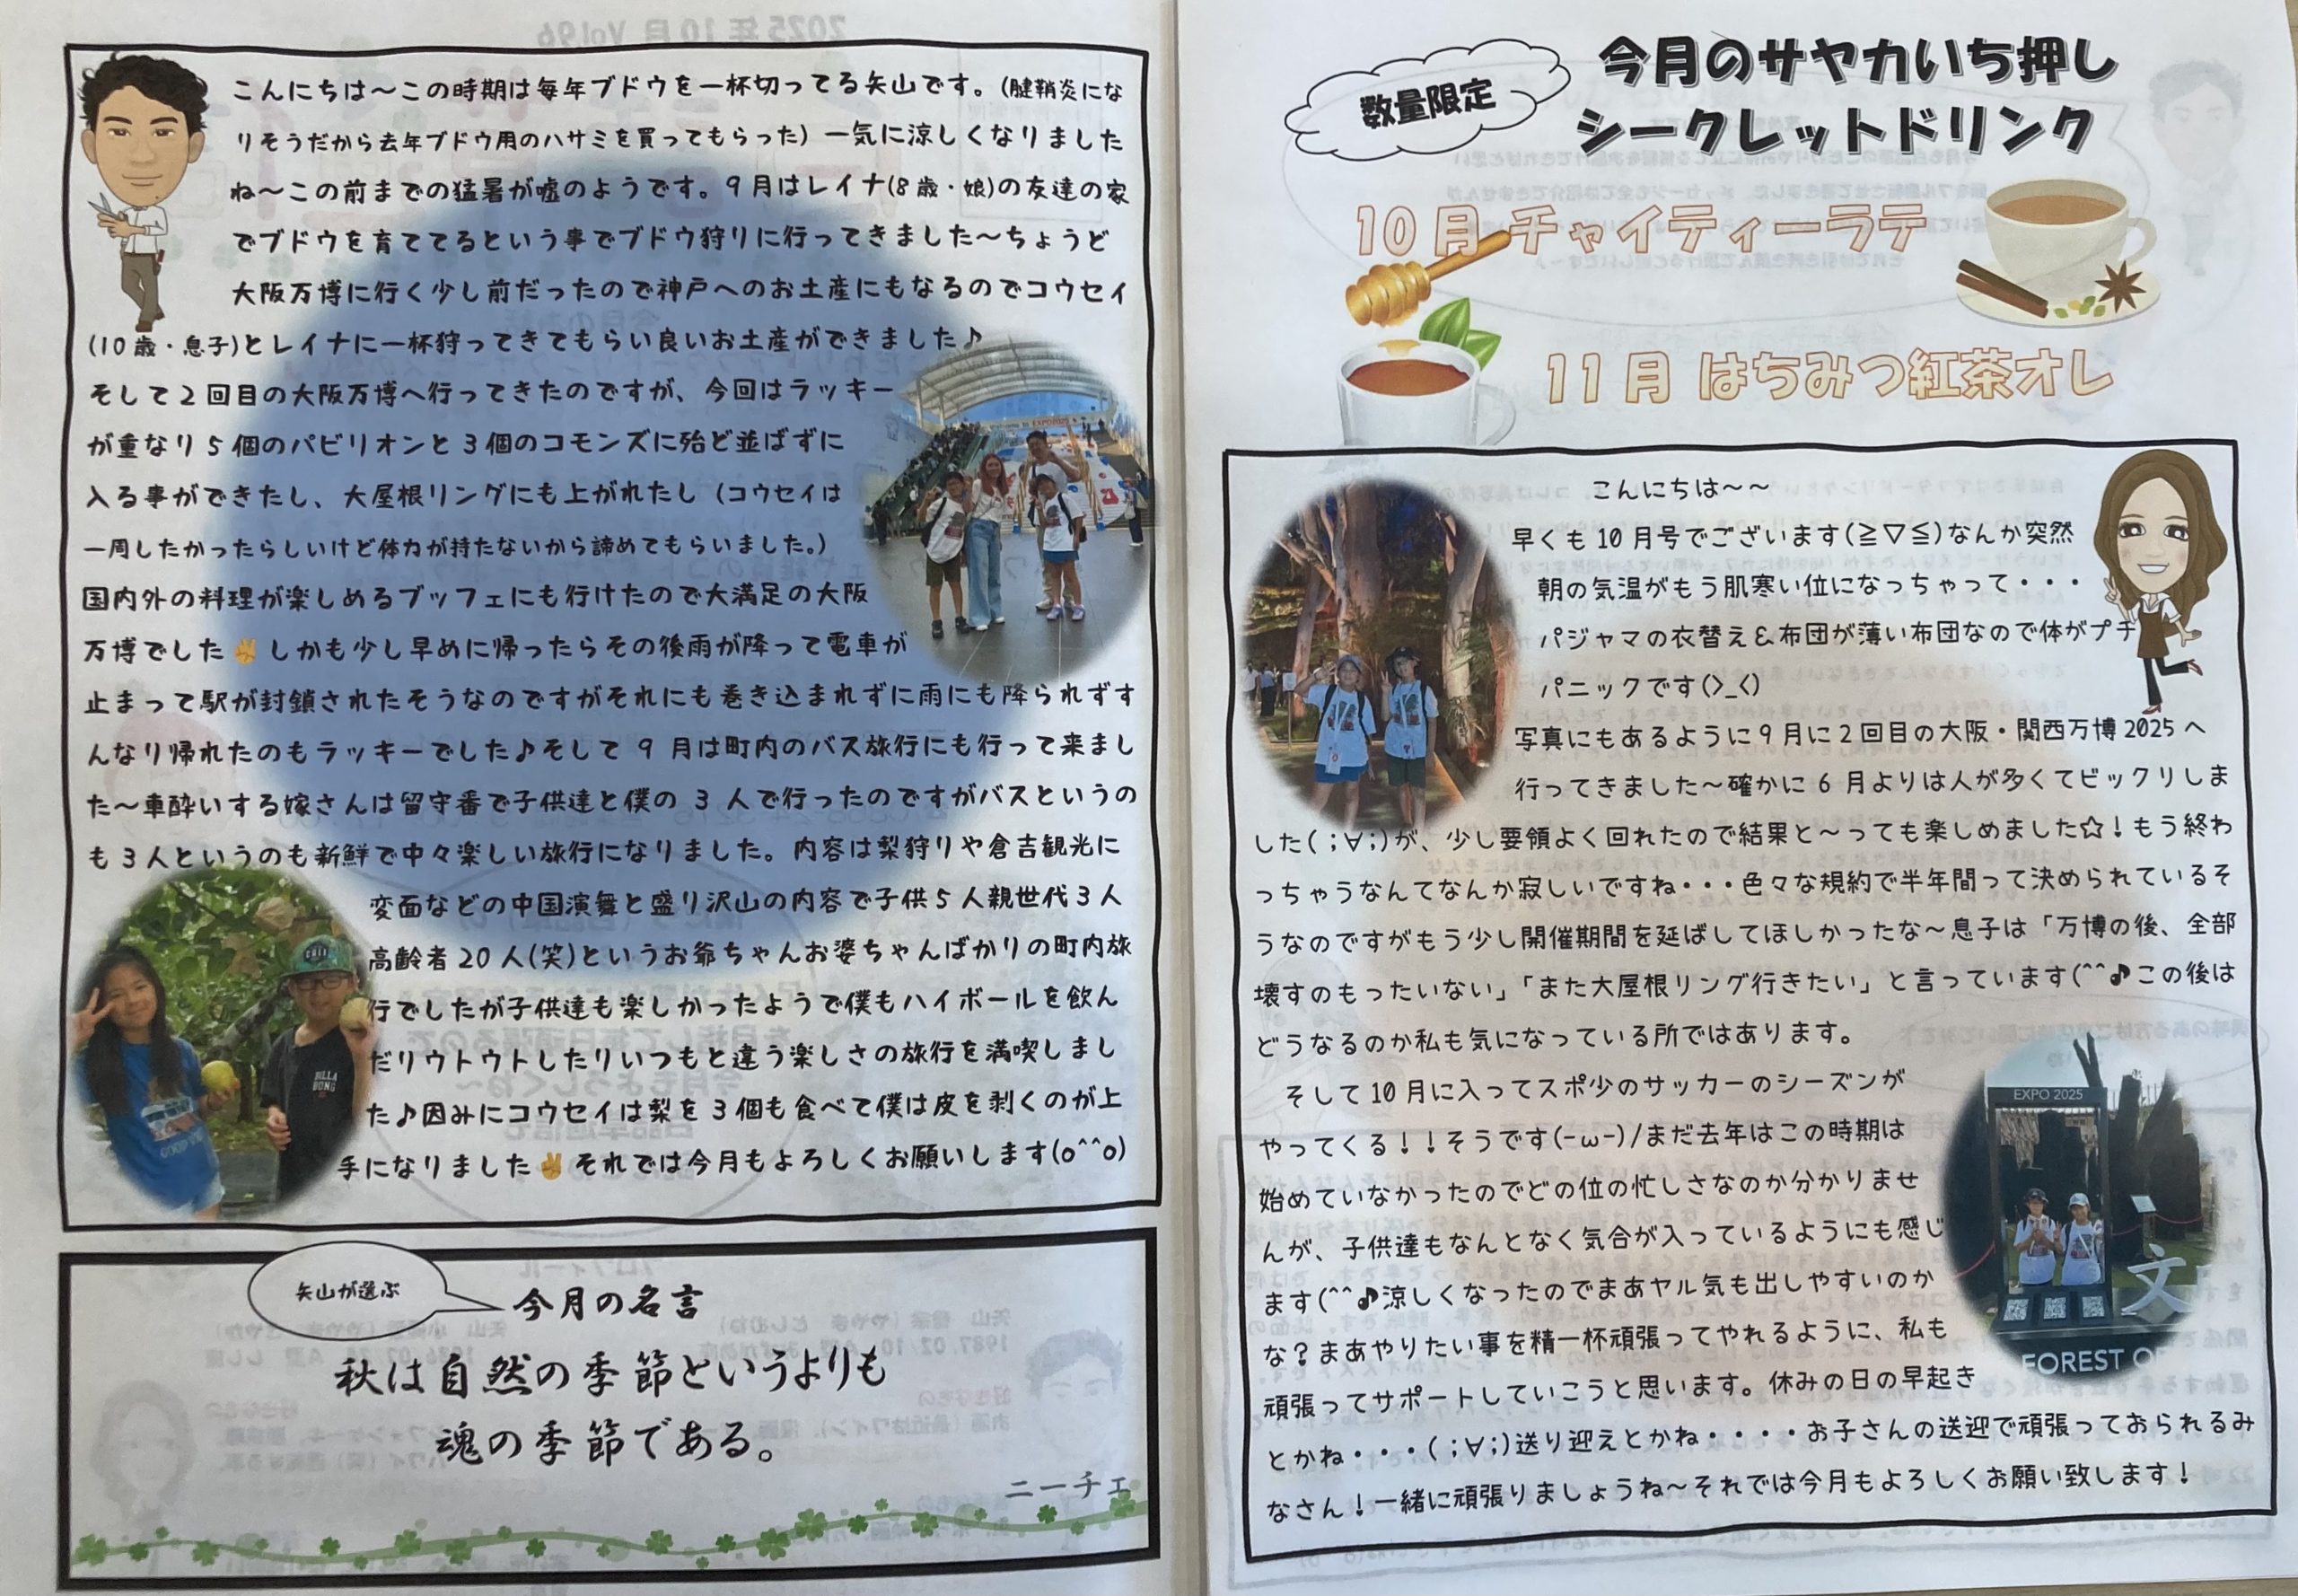 こんにちは～この時期は毎年ブドウを一杯切ってる矢山です。(腱鞘炎にな
りそうだから去年ブドウ用のハサミを買ってもらった) 一気に涼しくなりました
ね～この前までの猛暑が嘘のようです。9月はレイナ(8歳・娘)の友達の家
でブドウを育ててるという事でブドウ狩りに行ってきました～ちょうど
大阪万博に行く少し前だったので神戸へのお土産にもなるのでコウセイ
(10歳・息子)とレイナに一杯狩ってきてもらい良いお土産ができました♪
そして2回目の大阪万博へ行ってきたのですが、今回はラッキー
が重なり5個のパビリオンと3個のコモンズに殆ど並ばずに
入る事ができたし、大屋根リングにも上がれたし (コウセイは
一周したかったらしいけど体力が持たないから諦めてもらいました。)
国内外の料理が楽しめるブッフェにも行けたので大満足の大阪
万博でした✌しかも少し早めに帰ったらその後雨が降って電車が
止まって駅が封鎖されたそうなのですがそれにも巻き込まれずに雨にも降られずす
んなり帰れたのもラッキーでした♪そして 9 月は町内のバス旅行にも行って来まし
た～車酔いする嫁さんは留守番で子供達と僕の 3 人で行ったのですがバスというの
も3人というのも新鮮で中々楽しい旅行になりました。内容は梨狩りや倉吉観光に
変面などの中国演舞と盛り沢山の内容で子供5人親世代3人
高齢者20人(笑)というお爺ちゃんお婆ちゃんばかりの町内旅
行でしたが子供達も楽しかったようで僕もハイボールを飲ん
だりウトウトしたりいつもと違う楽しさの旅行を満喫しまし
た♪因みにコウセイは梨を3個も食べて僕は皮を剥くのが上
手になりました✌それでは今月もよろしくお願いします(o^^o)
矢山が選ぶ
今月の名言
秋は自然の季節というよりも
魂の季節である。
ニーチェ
数量限定
今月のサヤカいち押し
シークレットドリンク
10月 チャイティーラテ
11月 はちみつ紅茶オレ
こんにちは～～
早くも10月号でございます(≧▽≦)なんか突然
朝の気温がもう肌寒い位になっちゃって・・・
パジャマの衣替え＆布団が薄い布団なので体がプチ
パニックです(>_<)
写真にもあるように9月に2回目の大阪・関西万博2025へ
行ってきました～確かに6月よりは人が多くてビックリしま
した(；∀；)が、少し要領よく回れたので結果と～っても楽しめました☆！もう終わ
っちゃうなんてなんか寂しいですね・・・色々な規約で半年間って決められているそ
うなのですがもう少し開催期間を延ばしてほしかったな～息子は「万博の後、全部
壊すのもったいない」「また大屋根リング行きたい」と言っています(^^♪この後は
どうなるのか私も気になっている所ではあります。
そして10月に入ってスポ少のサッカーのシーズンが
やってくる！！そうです(-ω-)/まだ去年はこの時期は
始めていなかったのでどの位の忙しさなのか分かりませ
んが、子供達もなんとなく気合が入っているようにも感じ
ます(^^♪涼しくなったのでまあヤル気も出しやすいのか
な？まあやりたい事を精一杯頑張ってやれるように、私も
頑張ってサポートしていこうと思います。休みの日の早起き
とかね・・・(；∀；)送り迎えとかね・・・・お子さんの送迎で頑張っておられるみ
なさん！一緒に頑張りましょうね～それでは今月もよろしくお願い致します！
EXPO 2025
文
FOREST OF
BILLA
BONG